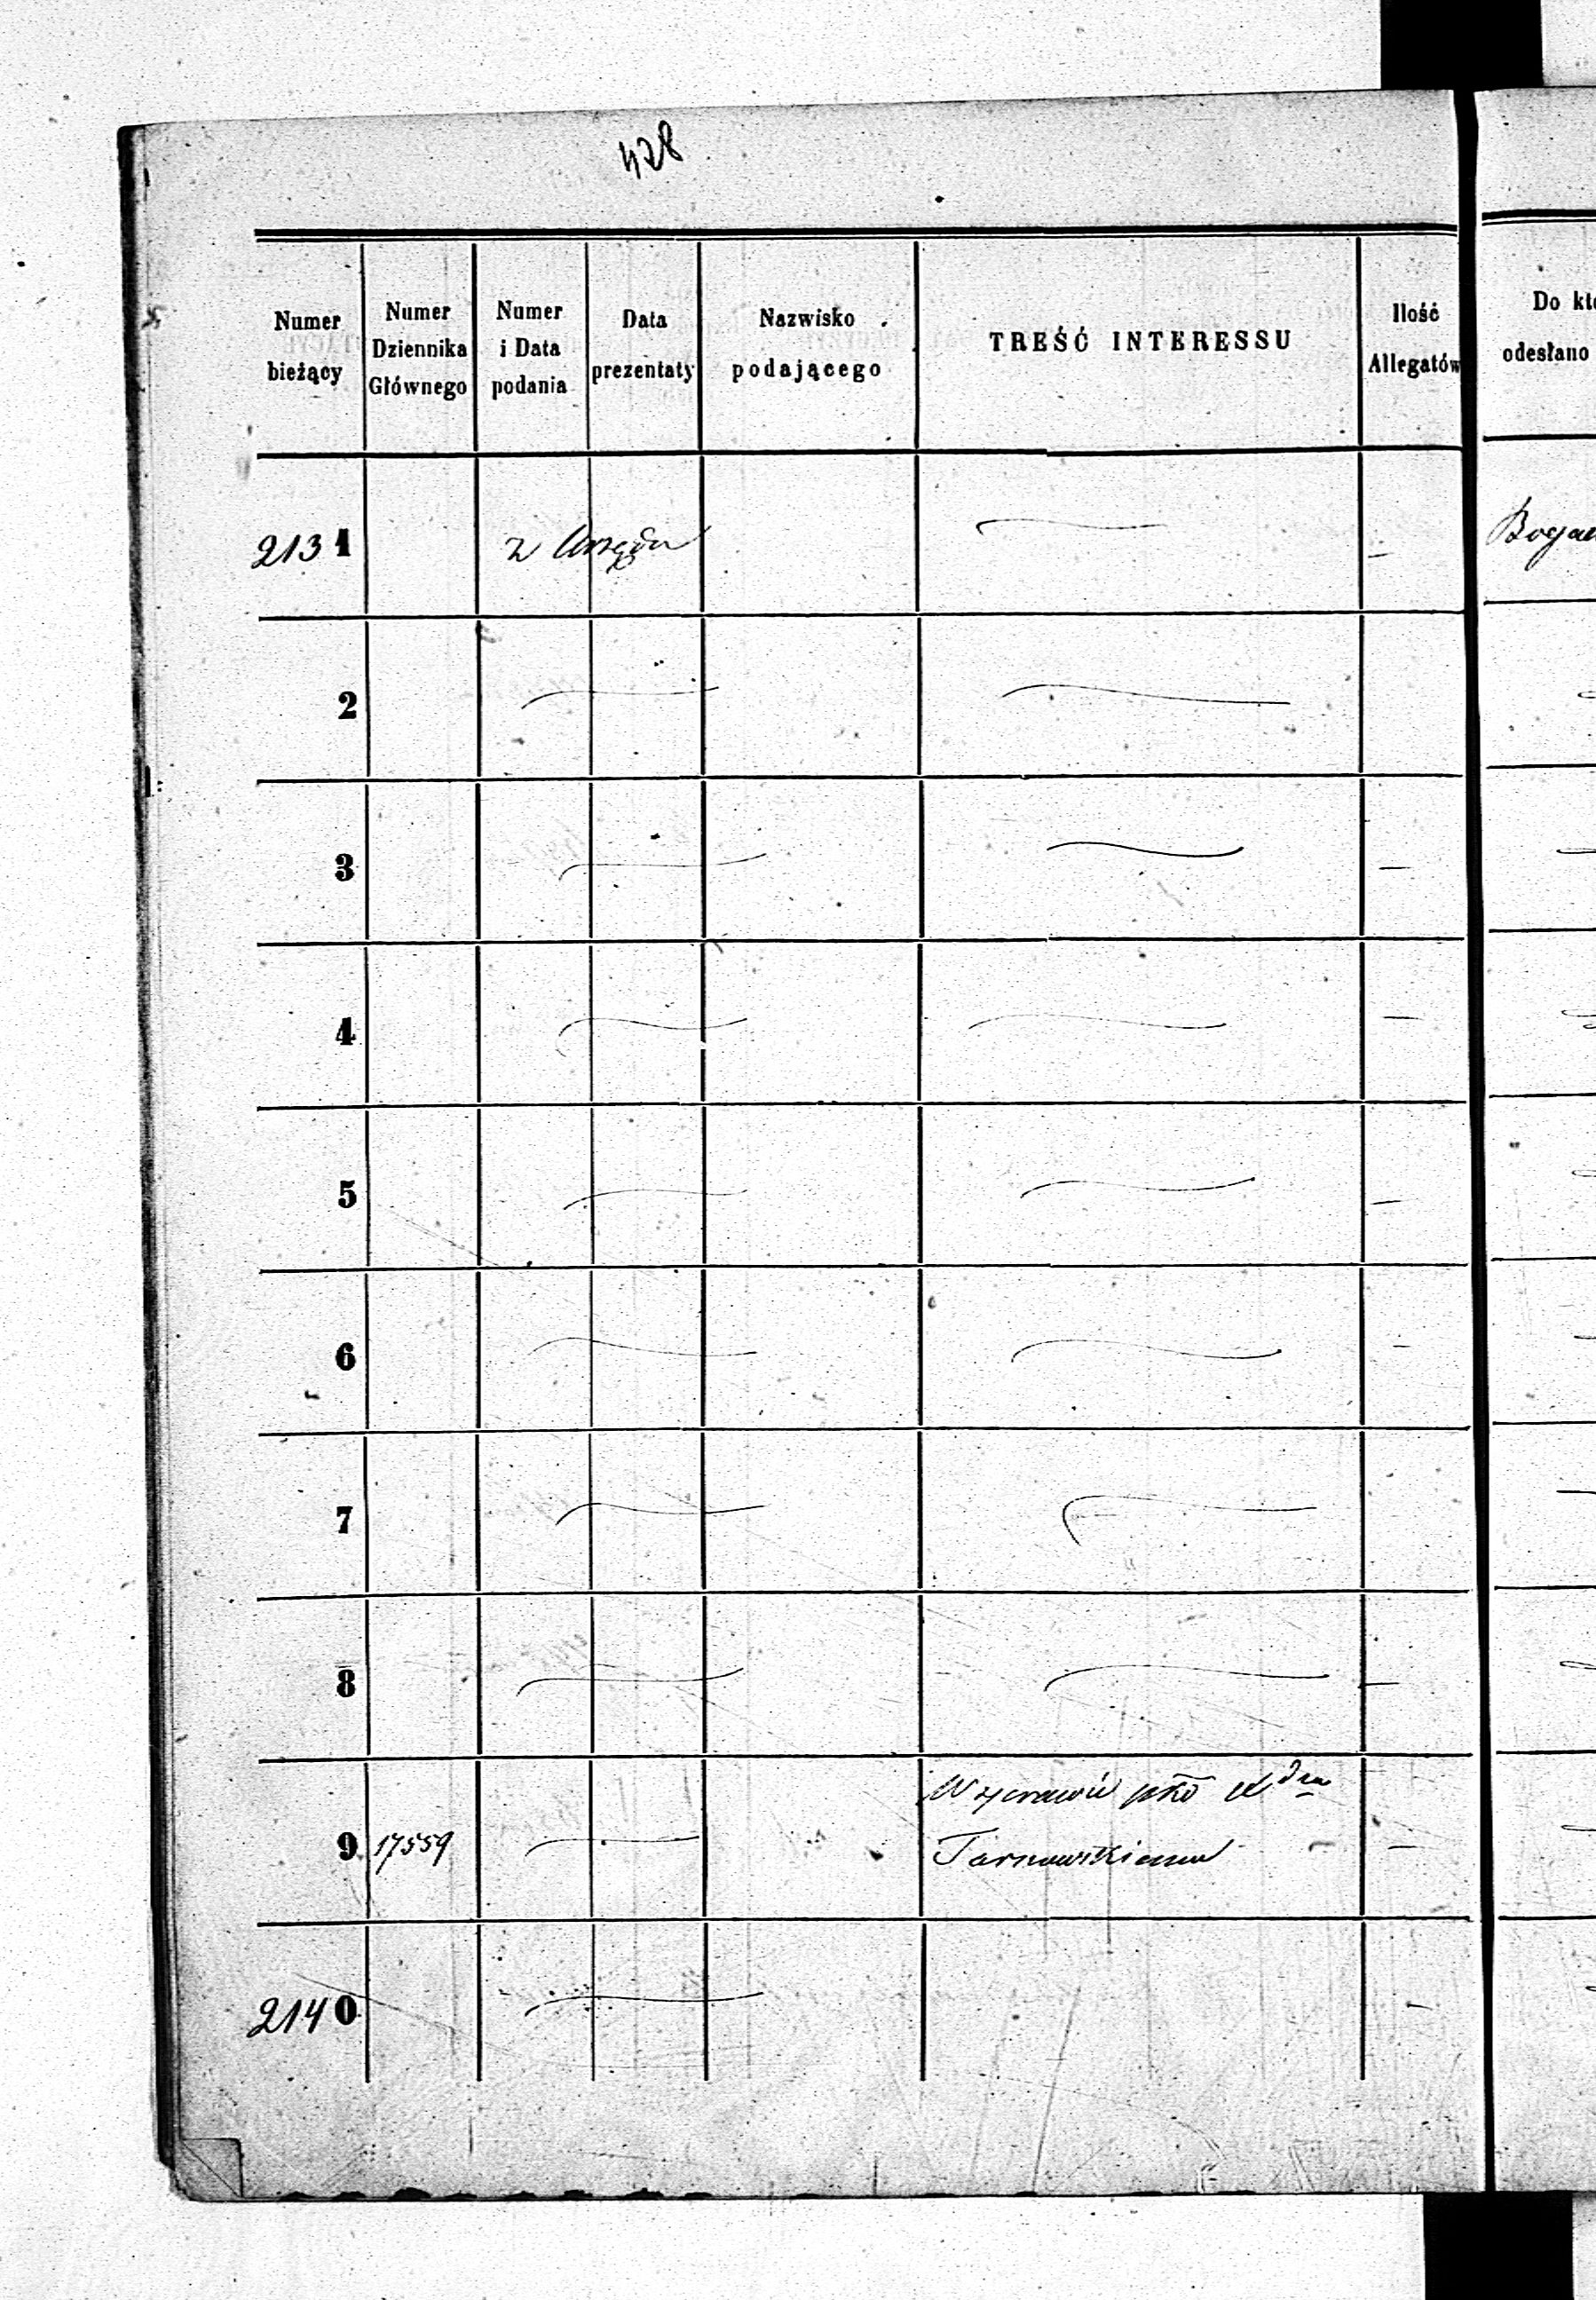 428
Numer bieżący
Numer Dziennika Głównego
Numer i Data podania
Data prezentaty
Nazwisko podającego
TREŚĆ INTERESSU
Ilość Allegatów
Do kt
odesłano
2131 z Urzędu — — Boga
2 — —
3 — — —
4 — — —
5 — — —
6 — — —
7 — —
8 — — —
9 17559 —
Tarnowskiemu — —
2140 — —